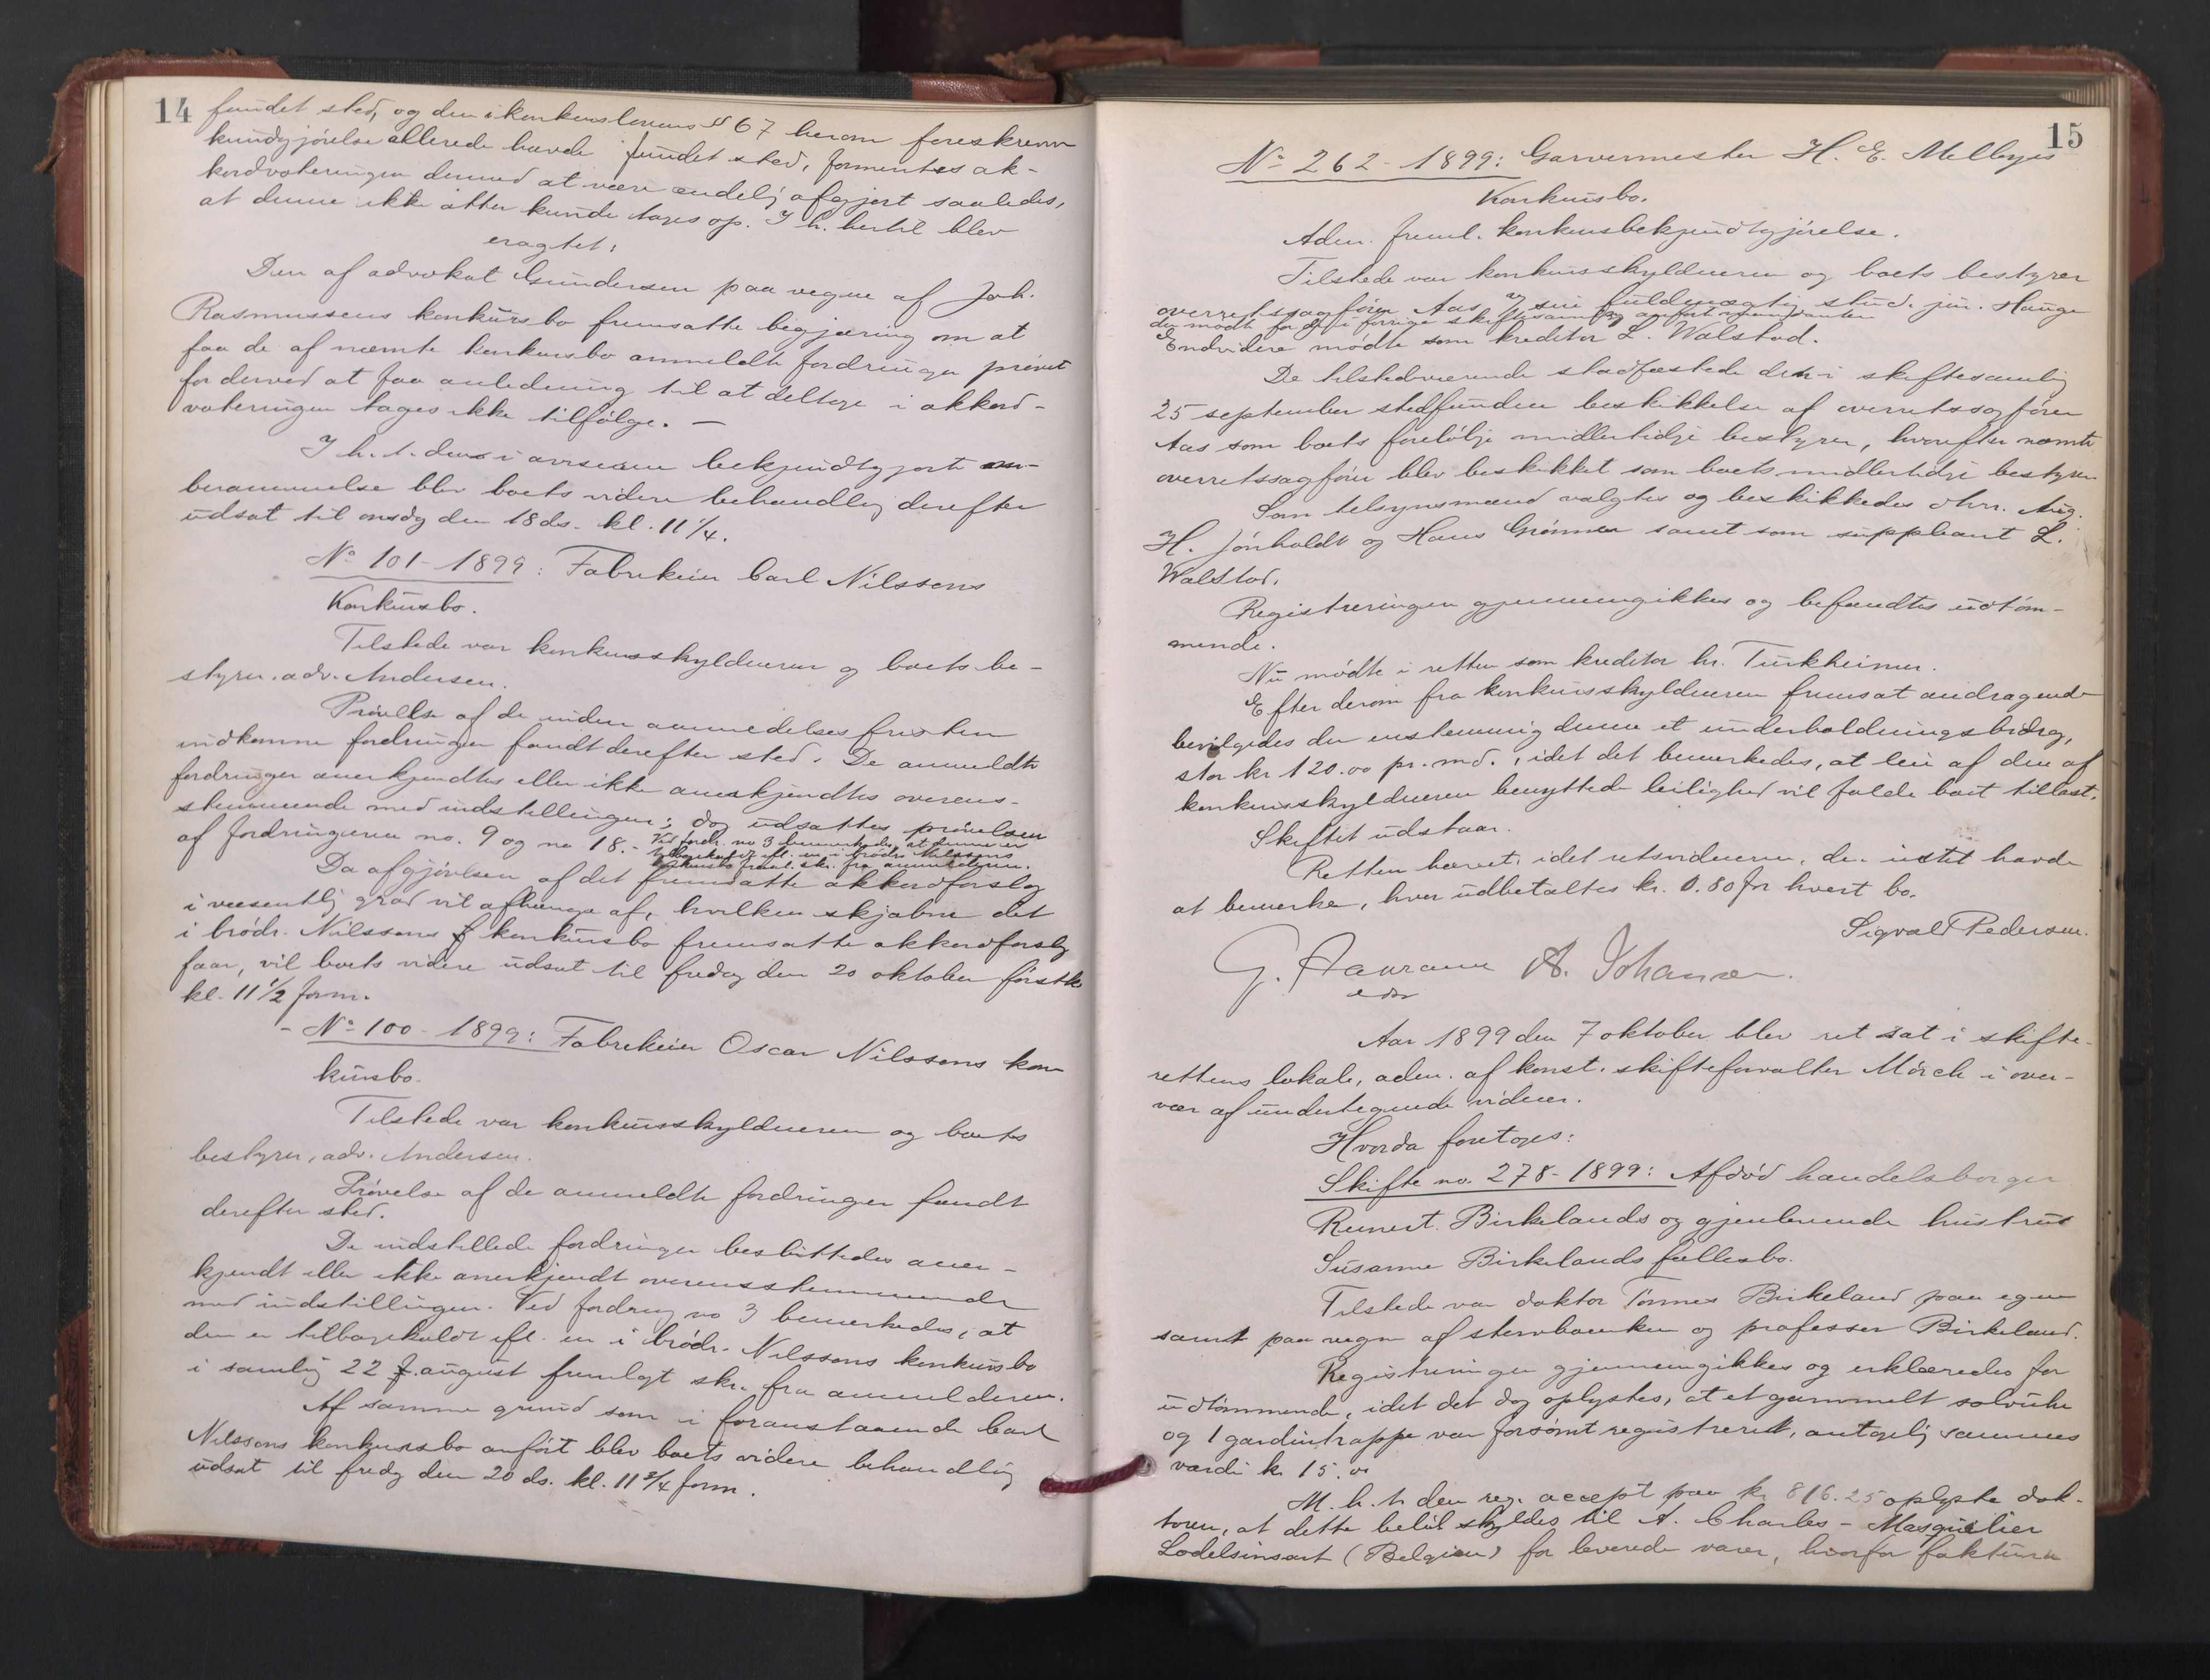 14
fundet sted, og den i konkurslovens § 67 herom foreskrevne
kundgjørelse allerede havde fundet sted, formentes ak-
kordvoteringen dermed at være endelig afgjort saaledes,
at denne ikke atter kunde tages op. I h. hertil blev
eragtet:
Den af advokat Gundersen paa vegne af Joh.
Rasmussens konkursbo fremsatte begjæring om at
faa de af nævnte konkursbo anmeldte fordringer prøvet
for derved at faa anledning til at deltage i akkord-
voteringen tages ikke tilfølge. —
I h. t. den i aviserne bekjendtgjorte
berammelse blev boets videre behandling derefter
udsat til onsdg den 18 ds. kl. 11 1/4.
No 101 - 1899: Fabrikeier Carl Nilssens
Konkursbo.
Tilstede var konkursskyldneren og boets be-
styrer, adv. Andersen.
Prøvelse af de inden anmeldelsesfristen
indkomne fordringer fandt derefter sted. De anmeldte
fordringer anerkjendtes eller ikke anerkjendtes overens-
stemmende med indstillingen; dog udsattes prøvelsen
af fordringerne no. 9 og no 18. - Ved fordr. no 3 bemerkedes, at denne er
tilbagekaldt ifl. en i brødr. Nilssens
konkursbo freml. skr. fra anmelderen.
Da afgjørelsen af det fremsatte akkordforslag
i væsentlig grad vil afhænge af, hvilken skjæbne det
i brødr. Nilssens konkursbo fremsatte akkordforslag
faar, vil boets videre udsat til fredag den 20 oktober førstk
kl. 11 1/2 form.
- No 100 - 1899: Fabrikeier Oscar Nilssens kon
kursbo.
Tilstede var konkursskyldneren og boets
bestyrer, adv. Andersen.
Prøvelse af de anmeldte fordringer fandt
derefter sted.
De indstillede fordringer besluttedes aner-
kjendt eller ikke anerkjendt overensstemmende
med indstillingen. Ved fordring no 3 bemerkedes, at
den er tilbagekaldt ifl. en i brødr. Nilssens konkursbo
i samling 22 august fremlagt skr. fra anmelderen.
Af samme grund som i foranstaaende Carl
Nilssens konkursbo anført blev boets videre behandling
udsat til fredg den 20 ds. kl. 11 3/4 form.
15
No 262 - 1899: Garvermester H. E. Mellbyes
Konkursbo.
Adm. freml. konkursbekjendtgjørelse.
Tilstede var konkursskyldneren og boets bestyrer
overretssagfører Aas v sin fuldmægtig stud. jur. Hauge
der mødte for de i forrige skiftesamling anført
Endvidere mødte som kreditor L. Walstad.
De tilstedeværende stadfæstede den i skiftesamling
25 september stedfundne beskikkelse af overretssagfører
Aas som boets foreløbige midlertidige bestyrer, hvorefter nævnte
overretssagfører blev beskikket som boets midlertidige bestyrer
Som tilsynsmænd valgtes og beskikkedes dhrr. Aug.
H. Jønholdt og Hans Grønner samt som suppleant L.
Walstad.
Registreringen gjennemgikkes og befandtes udtøm-
mende.
Nu mødte i retten som kreditor hr. Türkheimer.
Efter derom fra konkursskyldneren fremsat andragende
bevilgedes der enstemmig denne et underholdningsbidrag,
stor kr 120.00 pr. md., idet det bemerkedes, at leie af den af
konkursskyldneren benyttede leilighed vil falde boet tillast.
Skiftet udstaar.
Retten hævet, idet retsvidnerne, der intet havde
at bemerke, hver udbetaltes kr. 0.80 for hvert bo.
Sigvald Pedersen.
G. A. Johansen.
Aar 1899 den 7 oktober blev ret sat i skifte-
rettens lokale, adm. af konst. skifteforvalter Mørch i over-
vær af undertegnede vidner.
Hvorda foretoges:
Skifte no. 278 - 1899: Afdød handelsborger
Reinert Birkelands og gjenlevende hustrus
Susanne Birkelands fællesbo.
Tilstede var doktor Tønnes Birkeland paa egne
samt paa vegne af sterboenken og professor Birkeland.
Registreringen gjennemgikkes og erklæredes for
udtømmende, idet det dog oplystes, at et gammelt sølvuhr
og 1 gardintrappe var forsømt registreret, antagelig sammes
værdi kr 15.00
M. h. t. den reg. accept paa kr 816.25 oplyste dok-
toren, at dette beløb skyldes til A. Charles - Masquelier
Lodelinsart (Belgien) for leverede varer, hvorfor faktura